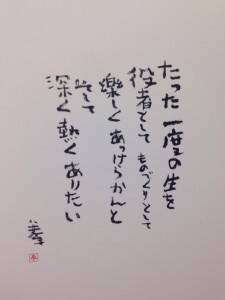 たった一度の生を
役者として ものづくりとして
楽しくあっけらかんと
そして
深く熱くありたい